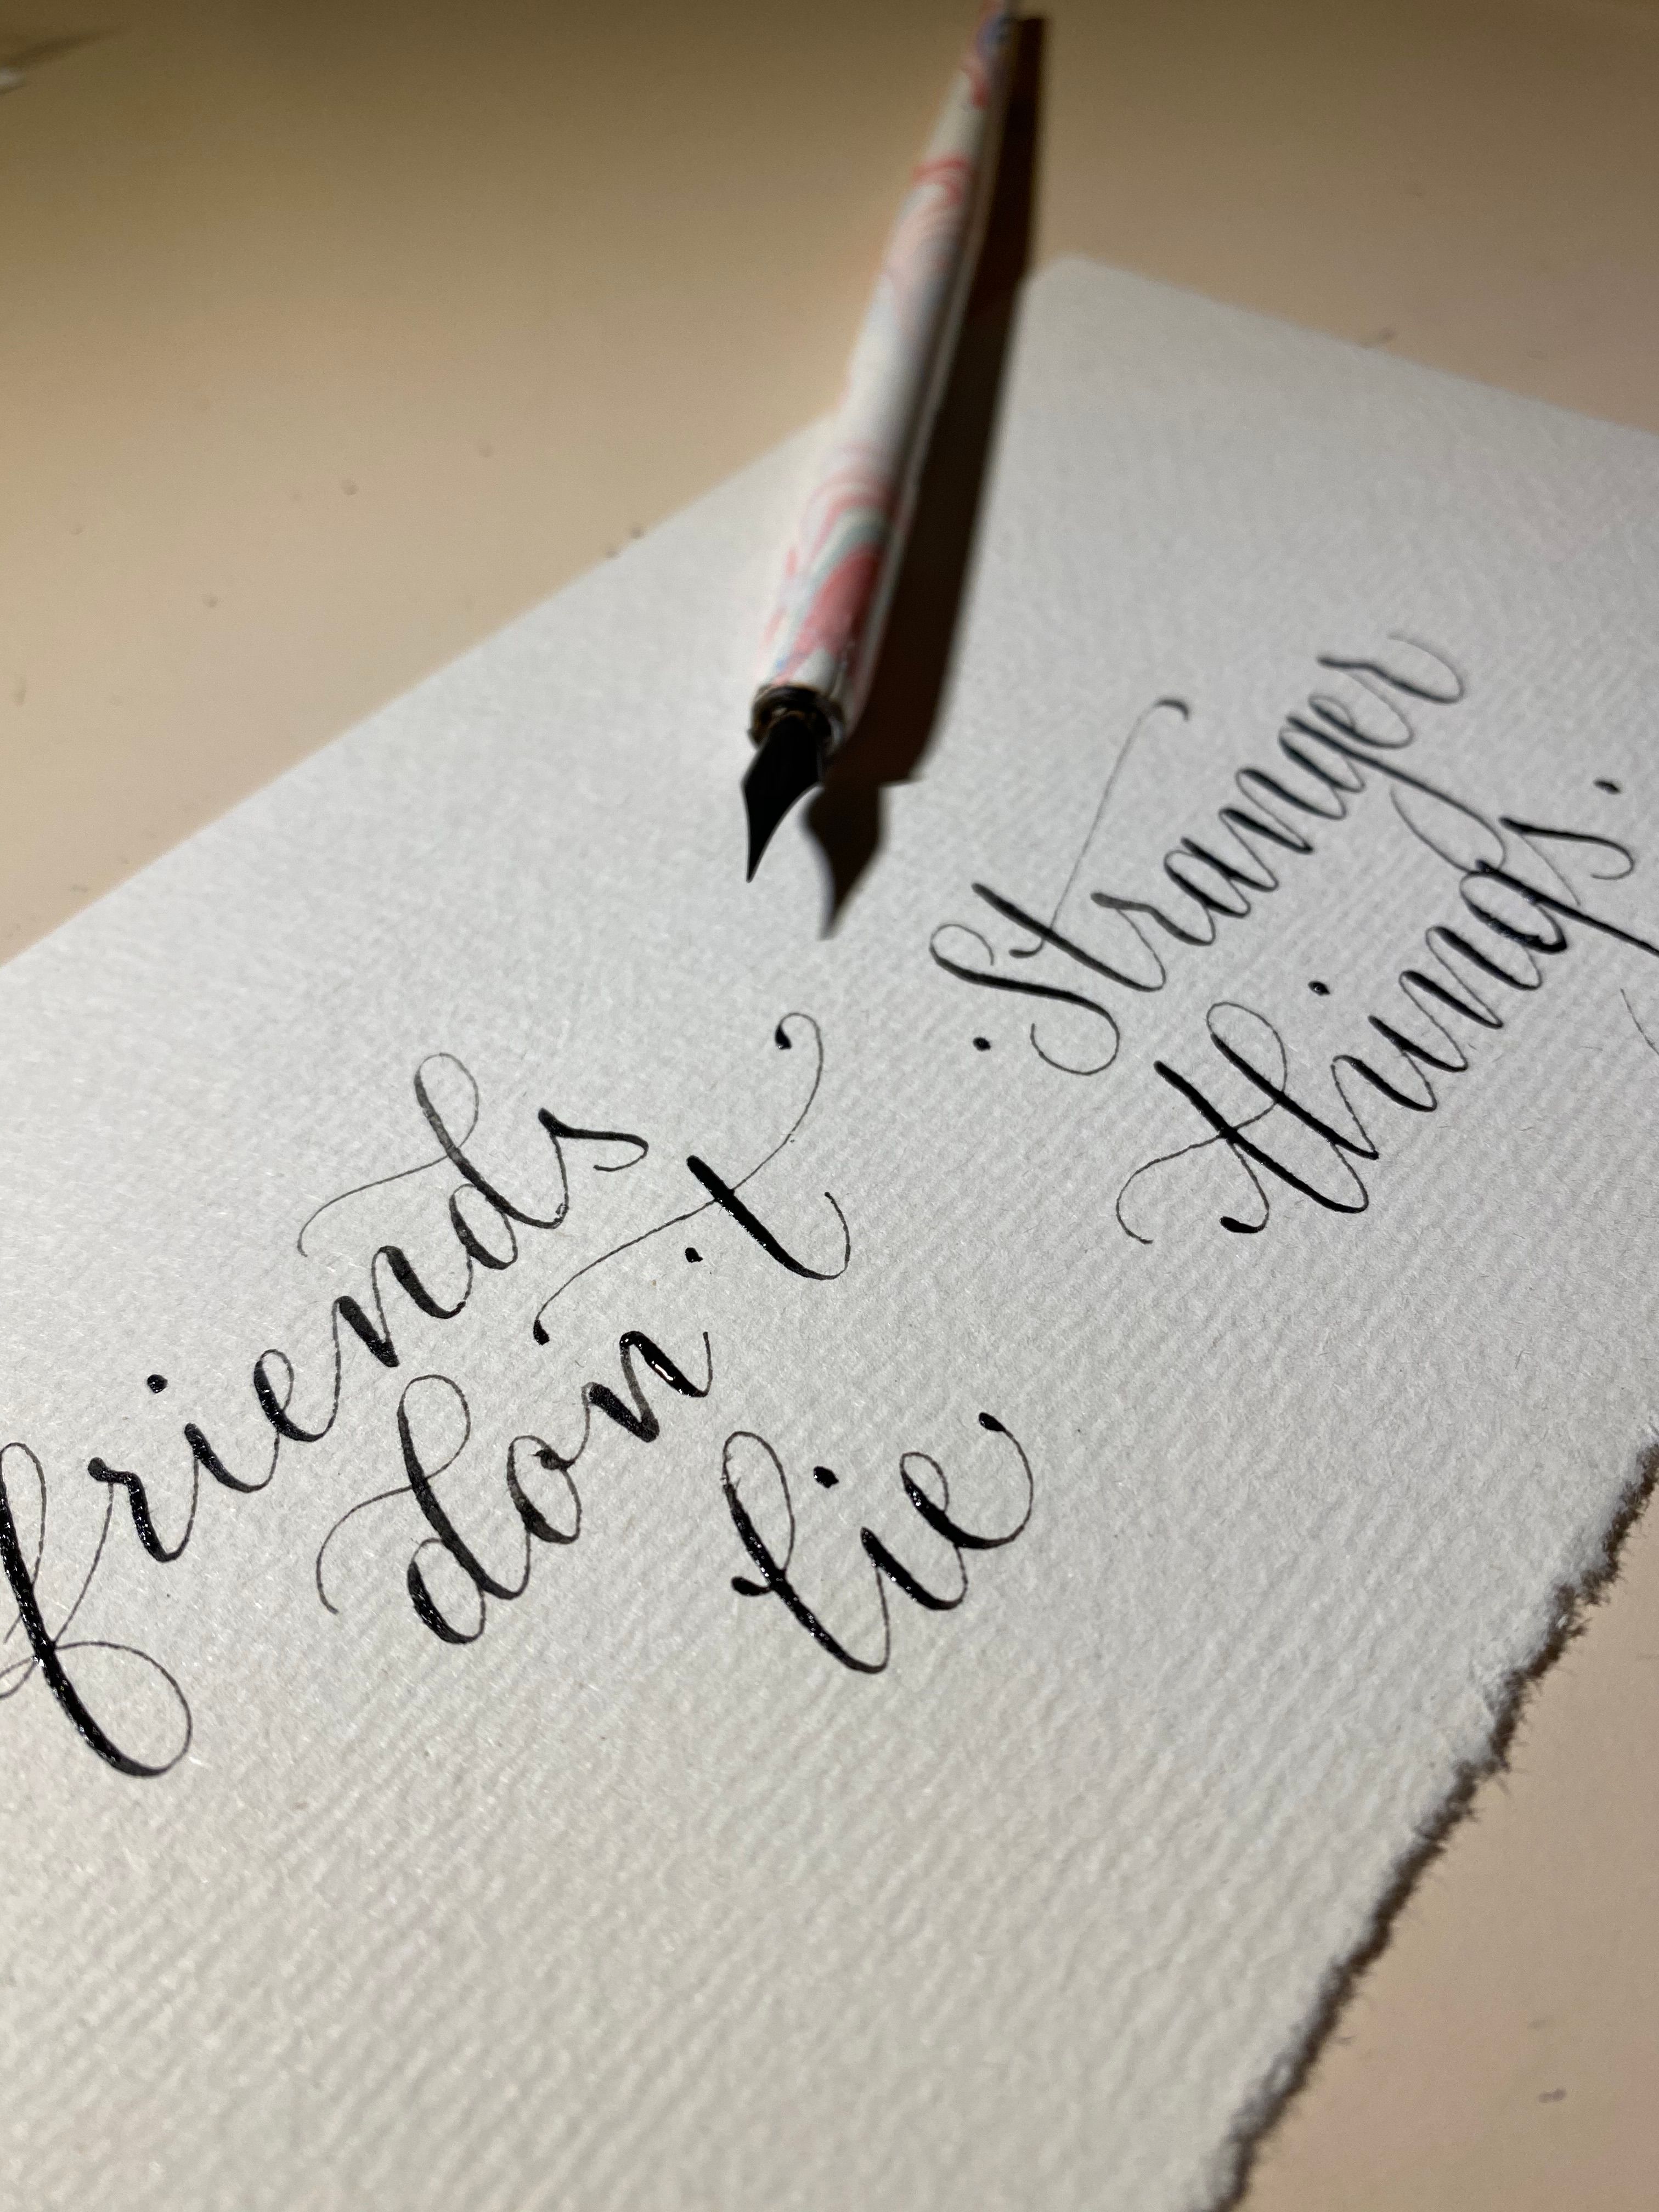 friends
don't
lie
·Stranger
things·